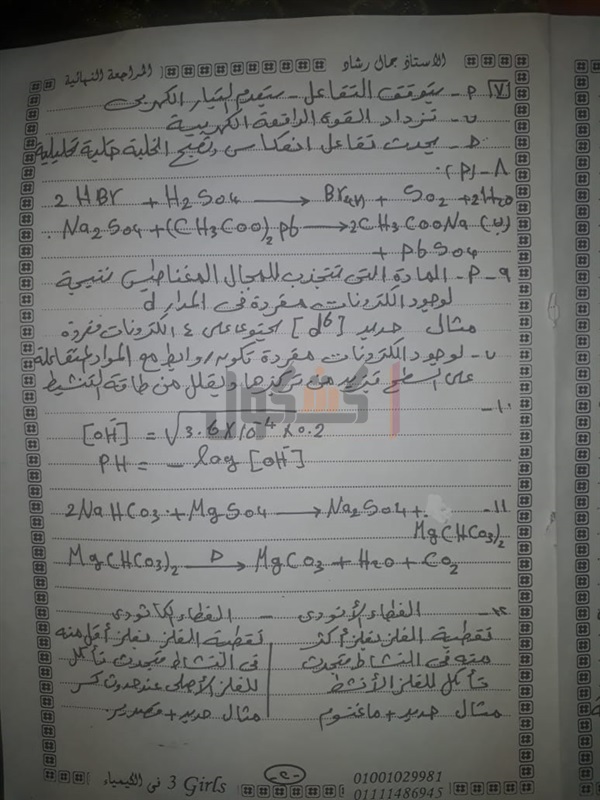 الاستاذ جمال رشاد المراجعة النهائية
[٧] م- يتوقف التفاعل - ينعدم التيار الكهربى
ب- تزداد القوى الدافعة الكهربية
ج- يحدث تفاعل انعكاسى وتصبح الخلية خلية تحليلية
٨- (م).
2HBr + H₂SO₄ ⟶ Br₂(v) + SO₂ + 2H₂O
(ب) Na₂SO₄ + (CH₃COO)₂Pb ⟶ 2CH₃COONa
+ PbSO₄
٩- م- المادة التى تنجذب للمجال المغناطيسى نتيجة
لوجود الكترونات مفردة فى المدار d
مثال حديد [d⁶] يحتوى على ٤ الكترونات مفردة
ب- لوجود الكترونات مفردة تكون روابط مع المواد المتفاعلة
على السطح تزيد من تركيزها ويقلل من طاقة التنشيط
كشكول
١٠-
[OH⁻] = √3.6 X 10⁻⁴ X 0.2
PH = - log [OH⁻]
١١- 2NaHCO₃ + MgSO₄ ⟶ Na₂SO₄ +
Mg(HCO₃)₂
Mg(HCO₃)₂ —Δ→ MgCO₃ + H₂O + CO₂
١٢- الغطاء الأنودى - الغطاء الكاثودى
تغطية الفلز بفلز أكثر تغطية الفلز بفلز أقل منه
منه فى النشاط فيحدث فى النشاط فيحدث تآكل
تآكل للفلز الأنشط للفلز الأصلى عند حدوث كسر
مثال حديد + ماغنسيوم مثال حديد + قصدير
01001029981
01111486945
3 Girls فى الكيمياء